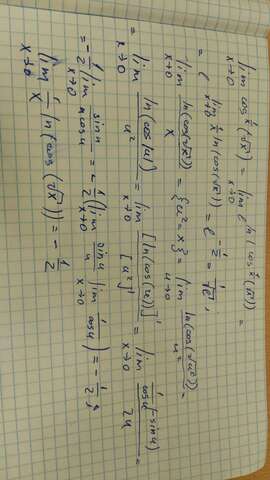 lim x→0 cos^(1/x)(√x) = lim x→0 e^(ln(cos^(1/x)(√x))) =
= e^(lim x→0 1/x ln(cos(√x))) = e^(-1/2) = 1/√e ;
lim x→0 ln(cos(√x))/x = {u²=x} = lim u→0 ln(cos(√u²))/u² =
= lim x→0 ln(cos|u|)/u² = lim x→0 [ln(cos(u))]'/[u²]' = lim x→0 1/cosu (-sin u)/2u =
= -1/2 lim x→0 sinu/u cosu = -1/2 (lim x→0 sinu/u lim x→0 1/cosu) = -1/2 ;
lim x→0 1/x ln(cos(√x)) = -1/2